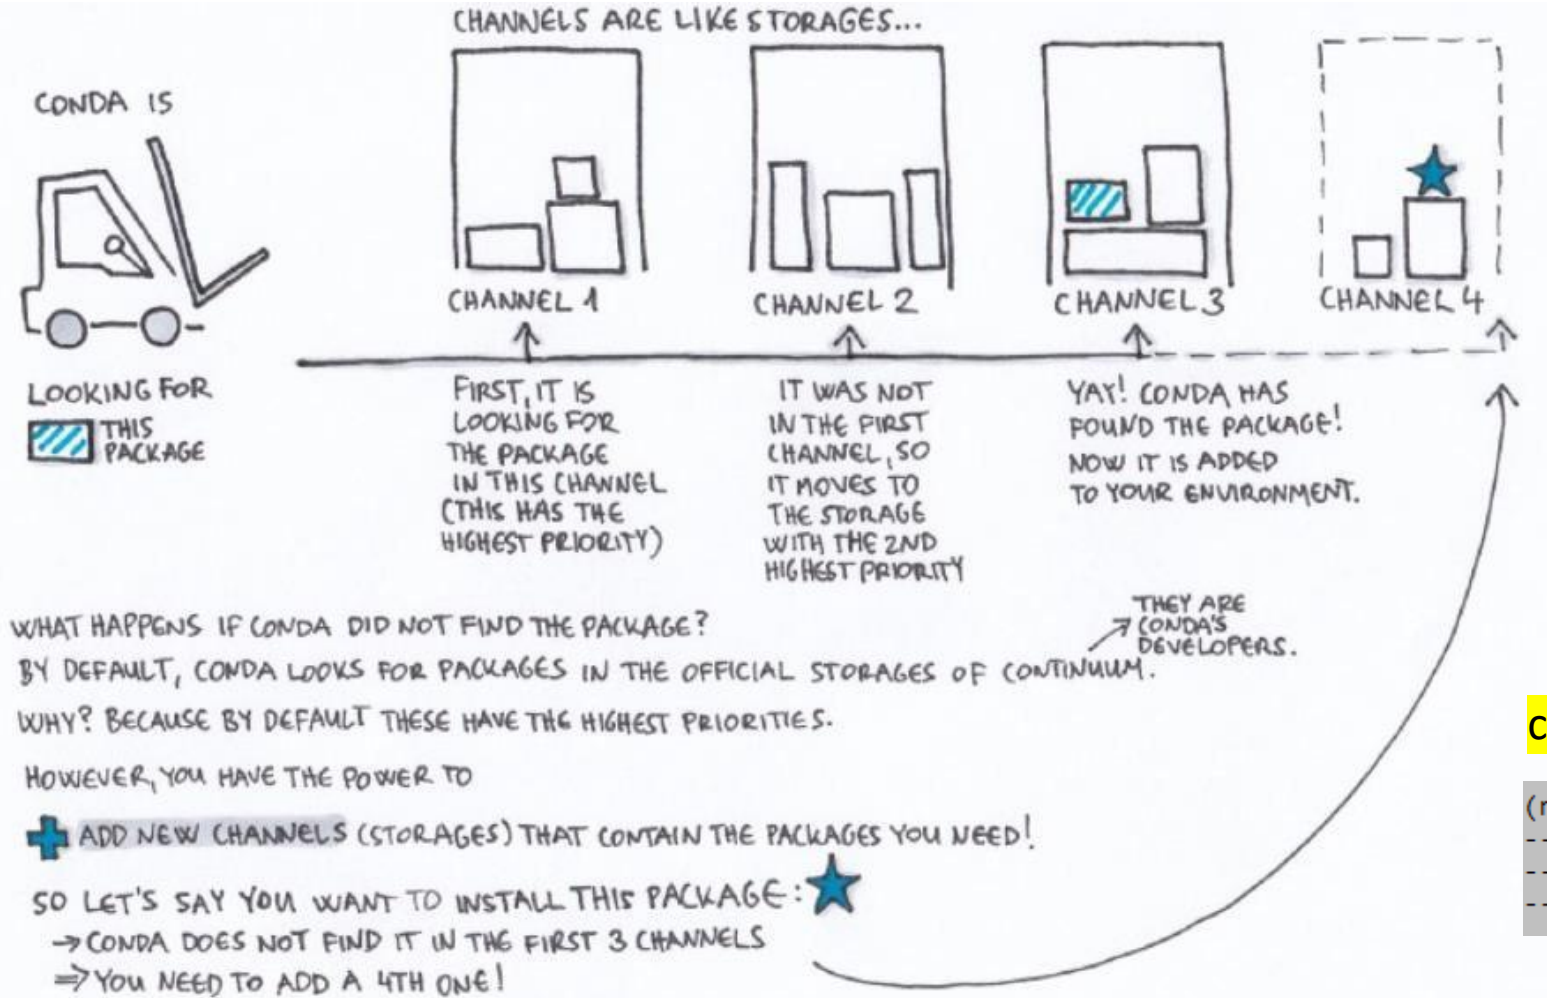 CHANNELS ARE LIKE STORAGES...
CONDA IS
CHANNEL 1
CHANNEL 2
CHANNEL 3
CHANNEL 4
LOOKING FOR
THIS
PACKAGE
FIRST, IT IS
LOOKING FOR
THE PACKAGE
IN THIS CHANNEL
(THIS HAS THE
HIGHEST PRIORITY)
IT WAS NOT
IN THE FIRST
CHANNEL, SO
IT MOVES TO
THE STORAGE
WITH THE 2ND
HIGHEST PRIORITY
YAY! CONDA HAS
FOUND THE PACKAGE!
NOW IT IS ADDED
TO YOUR ENVIRONMENT.
WHAT HAPPENS IF CONDA DID NOT FIND THE PACKAGE?
THEY ARE
CONDA'S
DEVELOPERS.
BY DEFAULT, CONDA LOOKS FOR PACKAGES IN THE OFFICIAL STORAGES OF CONTINUUM.
WHY? BECAUSE BY DEFAULT THESE HAVE THE HIGHEST PRIORITIES.
HOWEVER, YOU HAVE THE POWER TO
ADD NEW CHANNELS (STORAGES) THAT CONTAIN THE PACKAGES YOU NEED!
SO LET'S SAY YOU WANT TO INSTALL THIS PACKAGE:
→ CONDA DOES NOT FIND IT IN THE FIRST 3 CHANNELS
⇒ YOU NEED TO ADD A 4TH ONE!